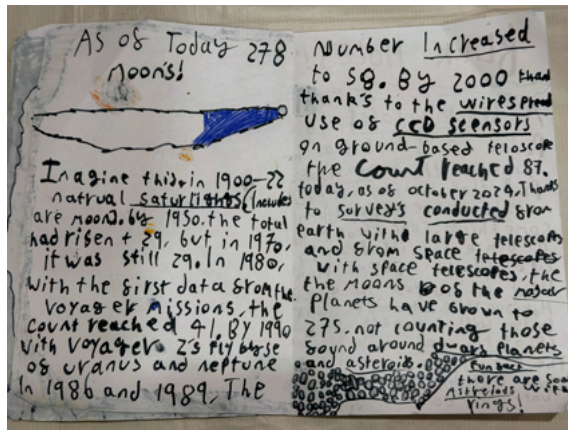 As of Today 278
Moons!
Imagine this, in 1900-22
natrual saturlights (includes
are moon). by 1950. the total
had risen t 29, but in 1970,
it was still 29. In 1980,
with the first data from the
voyager missions, the
count reached 41. By 1990
with voyager 2's flybyse
of uranus and neptune
In 1986 and 1989, The
Number Increased
to 58. By 2000 than
thank's to the wirespread
use of CCD scensors
on ground-based teloscope
the Count reached 87.
today, as of october 2024. Thanks
to survey's conducted from
earth withd large telescopes
and from space telescopes
with space telescopes, the
the moons of the major
Planets have grown to
275. not counting those
found around dwarf Planets
and asteroids.
Funfact
there are
with
rings!